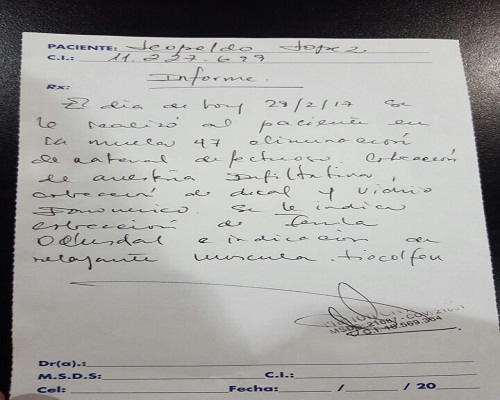 PACIENTE: Leopoldo Lopez
C.I.: 11.227.699
Informe.
Rx:
El dia de hoy 29/2/17 se
le realizó al paciente en
la muela 47 eliminación
de material defectuoso. Colocación
de anestesia Infiltativa,
colocación de dical y vidrio
Ionomerico. Se le indica
colocación de ferula
Oclusal e indicación de
relajante muscular. tiocolfen
Dr(a).:
M.S.D.S: C.I.:
Cel: Fecha: / / 20